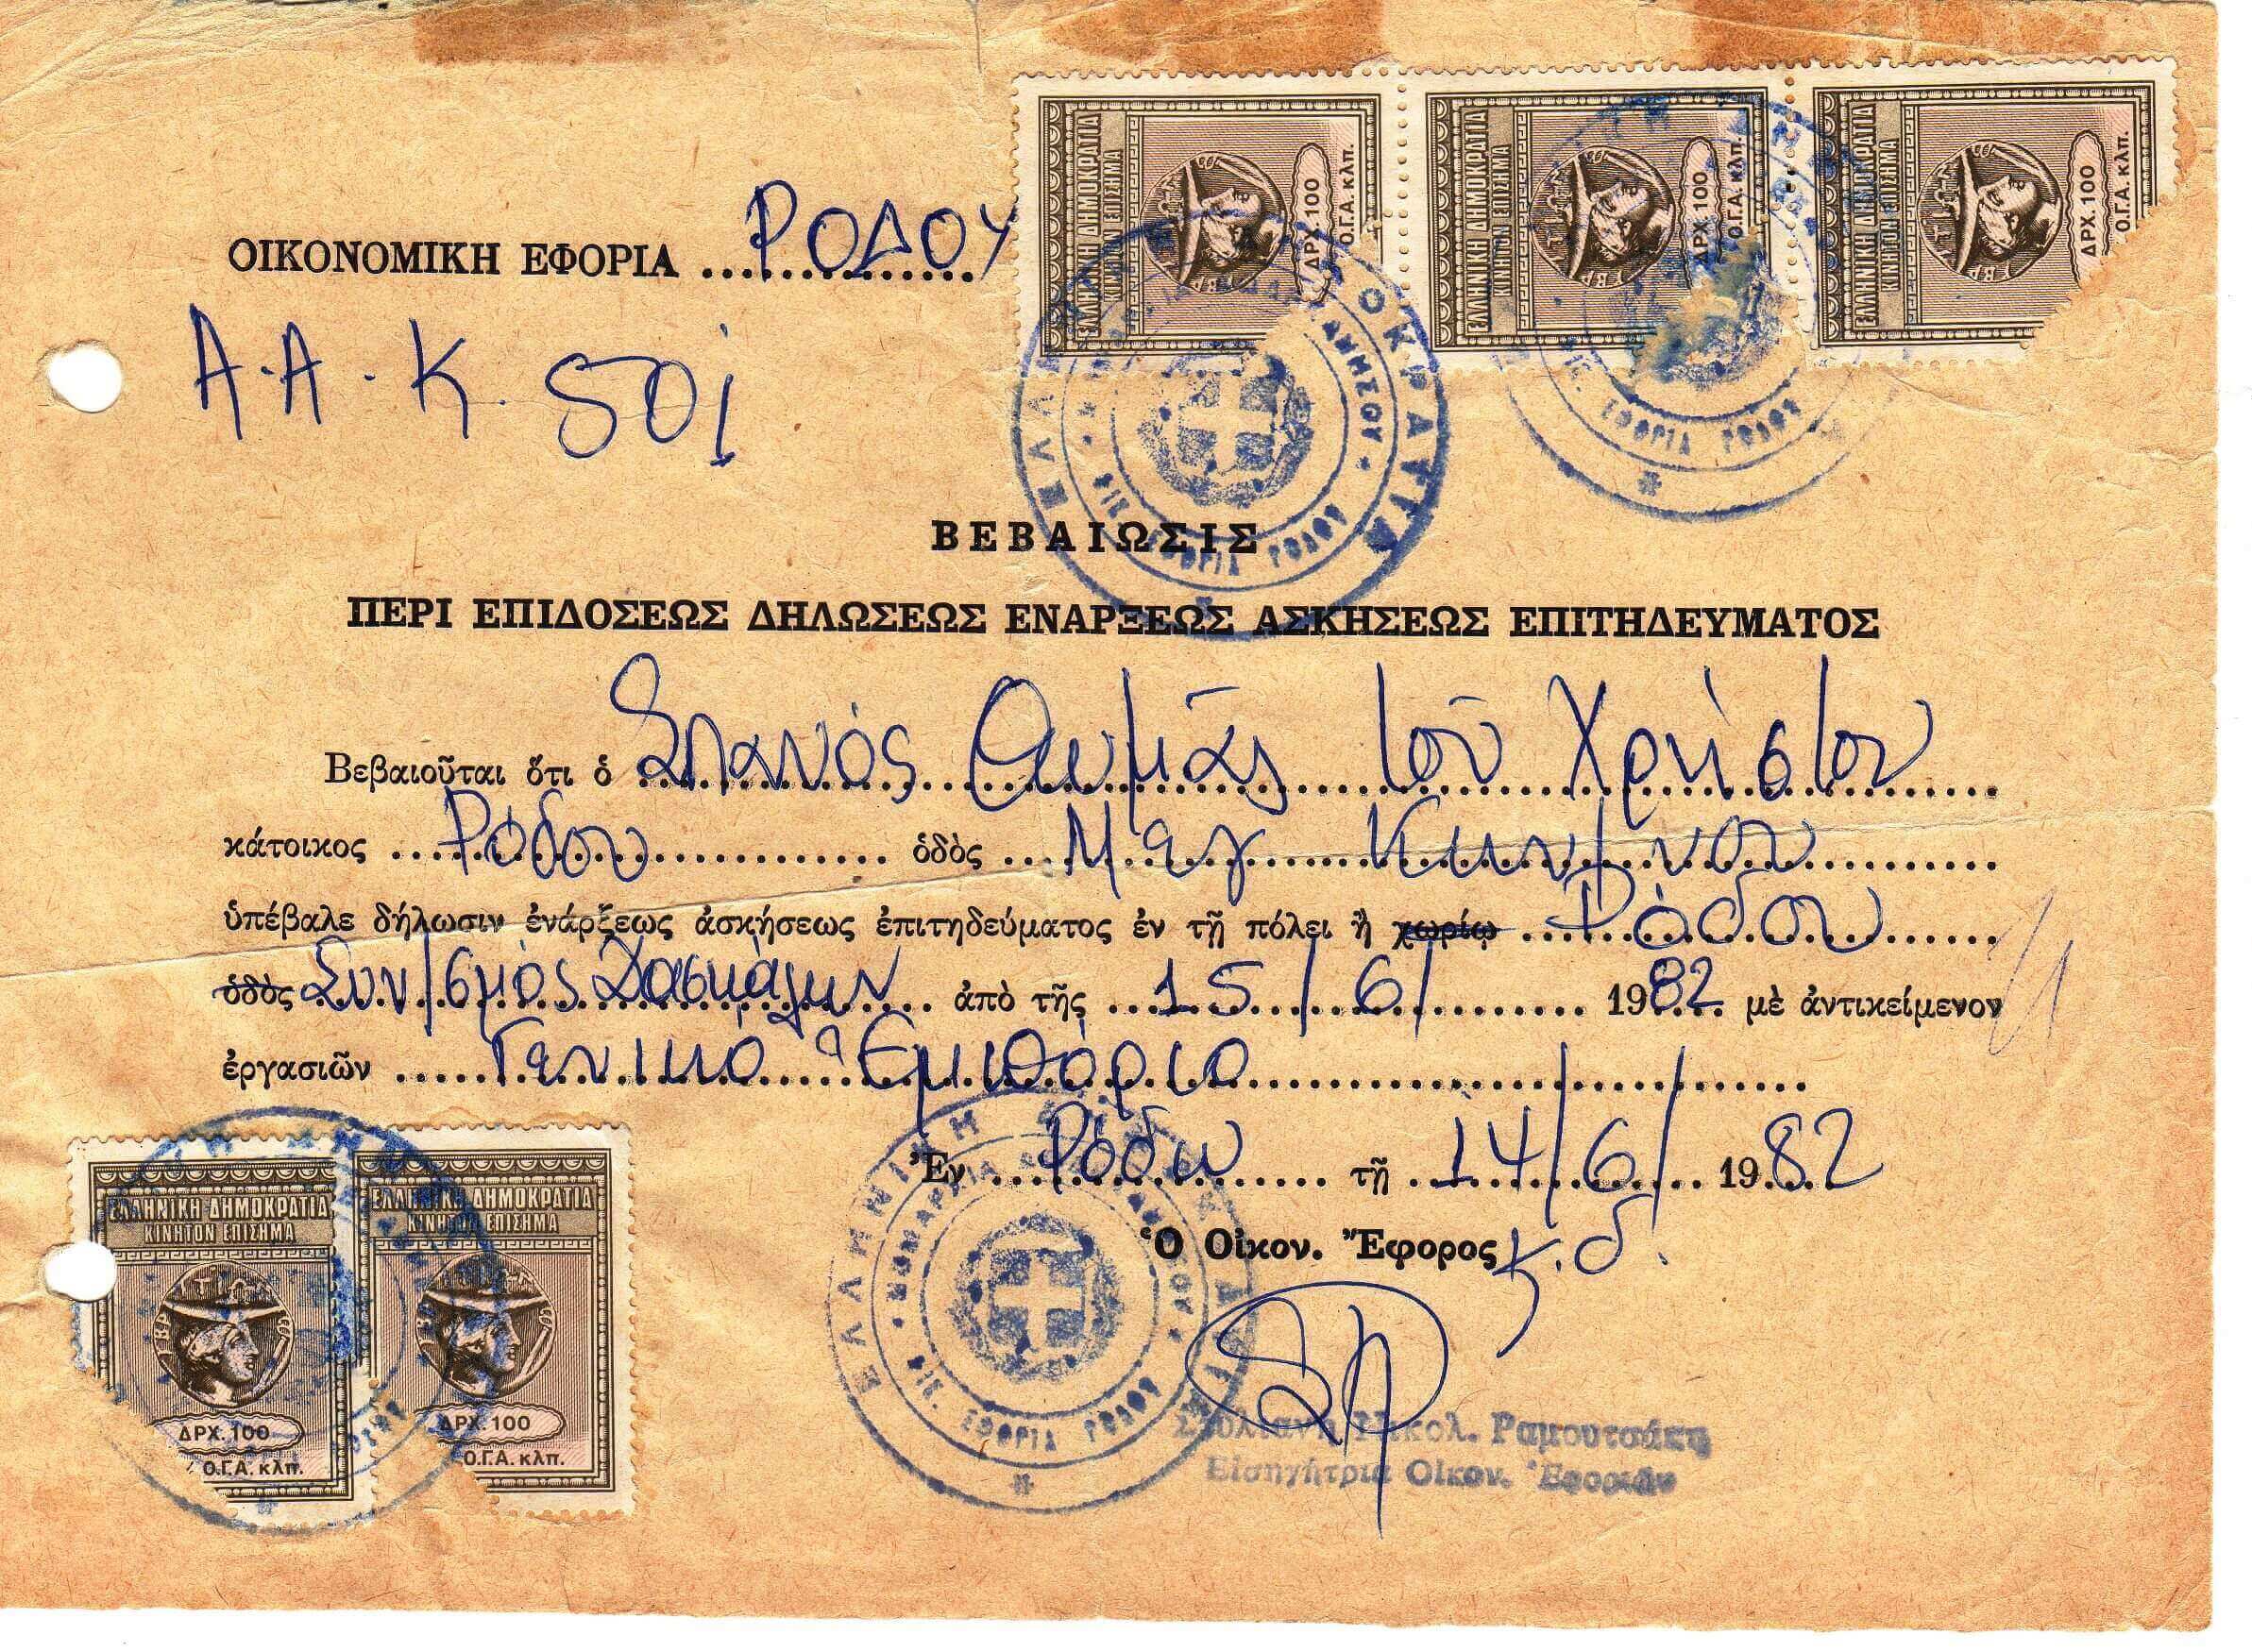 ΕΛΛΗΝΙΚΗ ΔΗΜΟΚΡΑΤΙΑ ΚΙΝΗΤΟΝ ΕΠΙΣΗΜΑ ΔΡΧ. 100 Ο.Γ.Α. κλπ.
ΕΛΛΗΝΙΚΗ ΔΗΜΟΚΡΑΤΙΑ ΚΙΝΗΤΟΝ ΕΠΙΣΗΜΑ ΔΡΧ. 100 Ο.Γ.Α. κλπ.
ΕΛΛΗΝΙΚΗ ΔΗΜΟΚΡΑΤΙΑ ΚΙΝΗΤΟΝ ΕΠΙΣΗΜΑ ΔΡΧ. 100 Ο.Γ.Α. κλπ.
ΟΙΚΟΝΟΜΙΚΗ ΕΦΟΡΙΑ ΡΟΔΟΥ
Α.Α. Κ 501
ΒΕΒΑΙΩΣΙΣ
ΠΕΡΙ ΕΠΙΔΟΣΕΩΣ ΔΗΛΩΣΕΩΣ ΕΝΑΡΞΕΩΣ ΑΣΚΗΣΕΩΣ ΕΠΙΤΗΔΕΥΜΑΤΟΣ
Βεβαιοῦται ὅτι ὁ Σπανός Θωμᾶς τοῦ Χρήστου
κάτοικος Ρόδου ὁδὸς Μεγ Κων/νου
ὑπέβαλε δήλωσιν ἐνάρξεως ἀσκήσεως ἐπιτηδεύματος ἐν τῇ πόλει ἢ χωρίῳ Ρόδου
ὁδὸς Συν/σμός ἀπὸ τῆς 15/6/ 1982 μὲ ἀντικείμενον
ἐργασιῶν Γενικό Ἐμπόριο
Ἐν Ρόδω τῇ 14/6/ 1982
Ὁ Οἰκον. Ἔφορος κ.δ.
Στυλιανή Νικολ. Ραμουτσάκη
Εἰσηγήτρια Οἰκον. Ἐφοριῶν
ΕΛΛΗΝΙΚΗ ΔΗΜΟΚΡΑΤΙΑ
ΚΙΝΗΤΟΝ ΕΠΙΣΗΜΑ
ΔΡΧ. 100
Ο.Γ.Α. κλπ.
ΕΛΛΗΝΙΚΗ ΔΗΜΟΚΡΑΤΙΑ
ΚΙΝΗΤΟΝ ΕΠΙΣΗΜΑ
ΔΡΧ. 100
Ο.Γ.Α. κλπ.